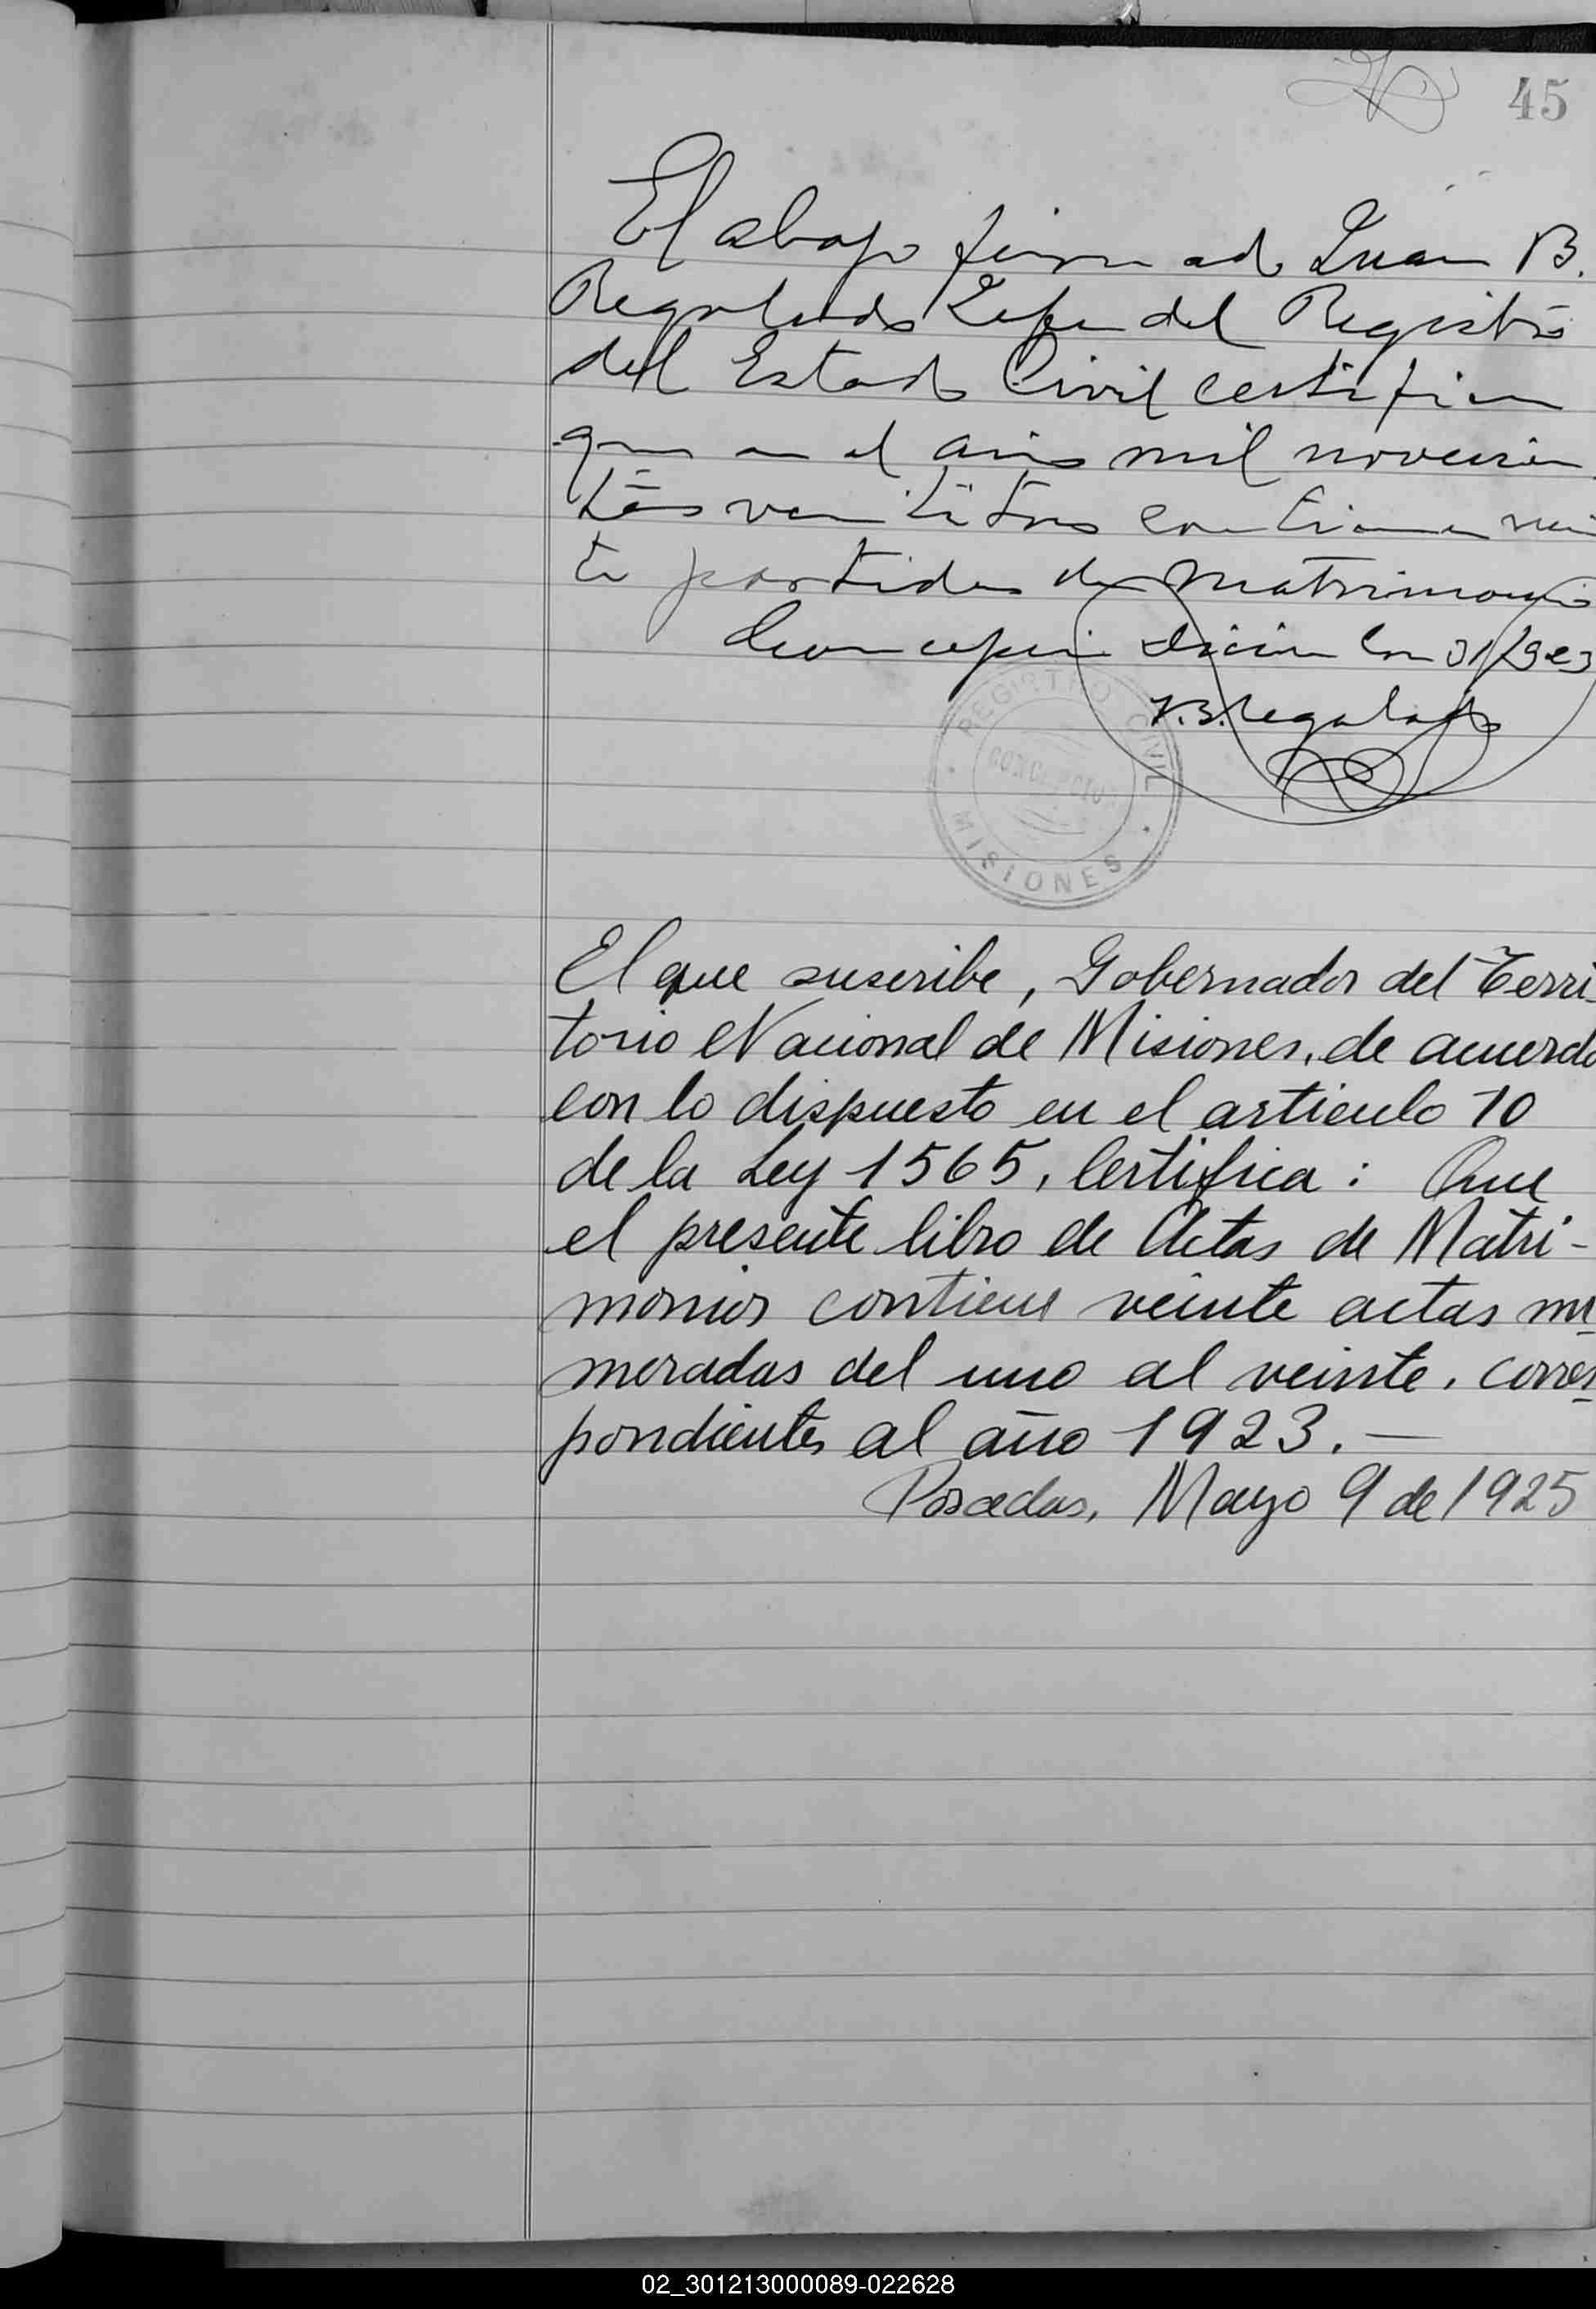 45
El abajo firmado Juan B.
Regalado Jefe del Registro
del Estado Civil certifica
que en el año mil novecien
tos veintitres contiene vein
te partidas de Matrimonio
Concepción 31/923
J.B. Regalado
REGISTRO CIVIL
CONCEPCION
MISIONES
El que suscribe, Gobernador del Terri-
torio Nacional de Misiones, de acuerdo
con lo dispuesto en el articulo 10
de la Ley 1565, Certifica: Que
el presente libro de Actas de Matri-
monios contiene veinte actas nu
meradas del uno al veinte, corres
pondientes al año 1923.—
Posadas, Mayo 9 de 1925
02_301213000089-022628